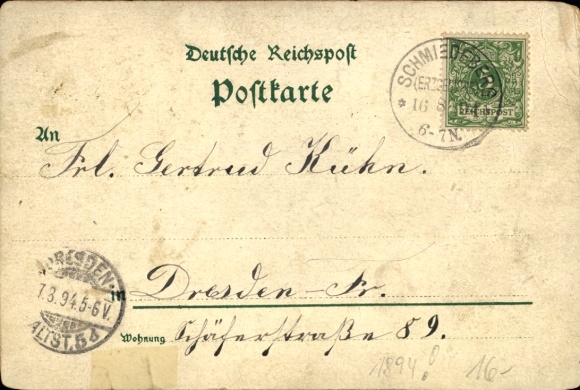 Deutsche Reichspost
Postkarte
SCHMIEDEBERG
16 8
6-7N.
REICHSPOST
An
Frl. Gertrud Kühn.
DRESDEN-
7.8.94.5-6V.
ALTST.5d
in Dresden-Fr.
Wohnung Schäferstraße 89.
1894
16-